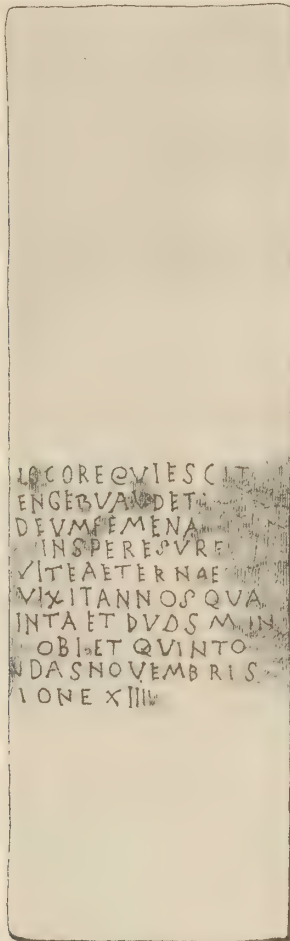 LOCOREQVIESCIT
ENGEBVAUDET
DEVMFEMENA
INSPERESVRE
VITEAETERNAE
VIXITANNOSQVA
INTA ET DVOS M IN
OBIET QVINTO
NDASNOVEMBRIS
IONE XIIII